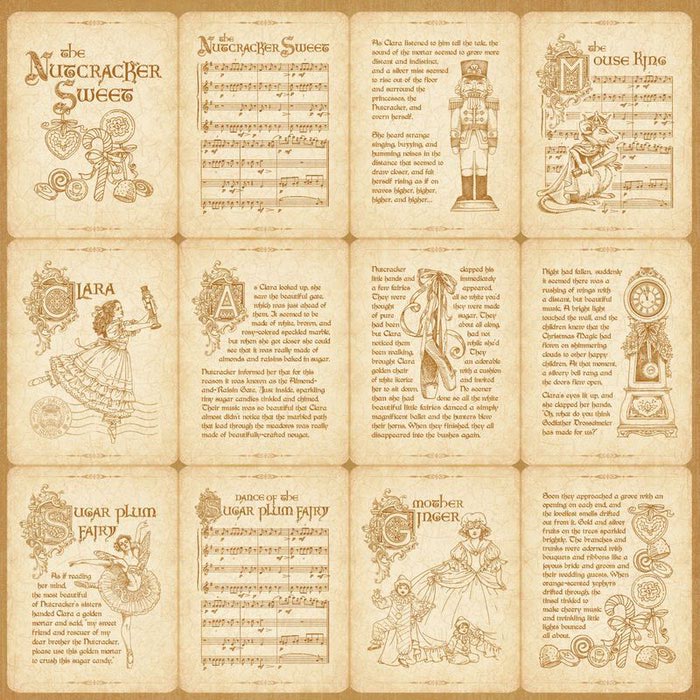 the
Nutcracker
Sweet
Nutcracker Sweet
As Clara listened to him tell the tale, the
sound of the mortar seemed to grow more
distant and indistinct,
and a silver mist seemed
to rise out of the floor
and surround the
princesses, the
Nutcracker, and
even herself.
She heard strange
singing, buzzing, and
humming noises in the
distance that seemed to
draw closer, and felt
herself rising as if on
waves higher, higher,
higher, and higher...
the
Mouse King
Clara
As Clara looked up, she
saw the beautiful gate,
which was just ahead of
them. It seemed to be
made of white, brown, and
rosy-colored speckled marble,
but when she got closer she could
see that it was really made of
almonds and raisins baked in sugar.
Nutcracker informed her that for this
reason it was known as the Almond-
and-Raisin Gate. Just inside, sparkling
tiny sugar candies tinkled and chimed.
Their music was so beautiful that Clara
almost didn't notice that the marbled path
that lead through the meadows was really
made of beautifully-crafted nougat.
Nutcracker clapped his
little hands and immediately
a few fairies appeared,
They were all so white you'd
thought they were made
of pure sugar. They
had been out all along,
but Clara had not
noticed them while she'd
been walking. They
brought Clara an adorable
golden chair with a cushion
of white licorice and invited
her to sit down. No sooner
than she had done so all the white
beautiful little fairies danced a simply
magnificent ballet and the hunters blew
their horns. When they finished, they all
disappeared into the bushes again.
Night had fallen, suddenly
it seemed there was a
rushing of wings with
a distant, but beautiful
music. A bright light
touched the wall, and the
children knew that the
Christmas Magic had
flown on shimmering
clouds to other happy
children. At that moment,
a silvery bell rang and
the doors flew open.
Clara's eyes lit up, and
she clapped her hands.
"Oh, what do you think
Godfather Drosselmeier
has made for us?"
Sugar Plum
Fairy
As if reading
her mind,
the most beautiful
of Nutcracker's sisters
handed Clara a golden
mortar and said, "my sweet
friend and rescuer of my
dear brother the Nutcracker,
please use this golden mortar
to crush this sugar candy."
Dance of the
Sugar Plum Fairy
Mother
Ginger
Soon they approached a grove with an
opening on each end, and
the loveliest smells drifted
out from it. Gold and silver
fruits on the trees sparkled
brightly. The branches and
trunks were adorned with
bouquets and ribbons like a
joyous bride and groom and
their wedding guests. When
orange-scented zephyrs
drifted through, the
tinsel tinkled to
make cheery music
and twinkling little
lights bounced
all about.